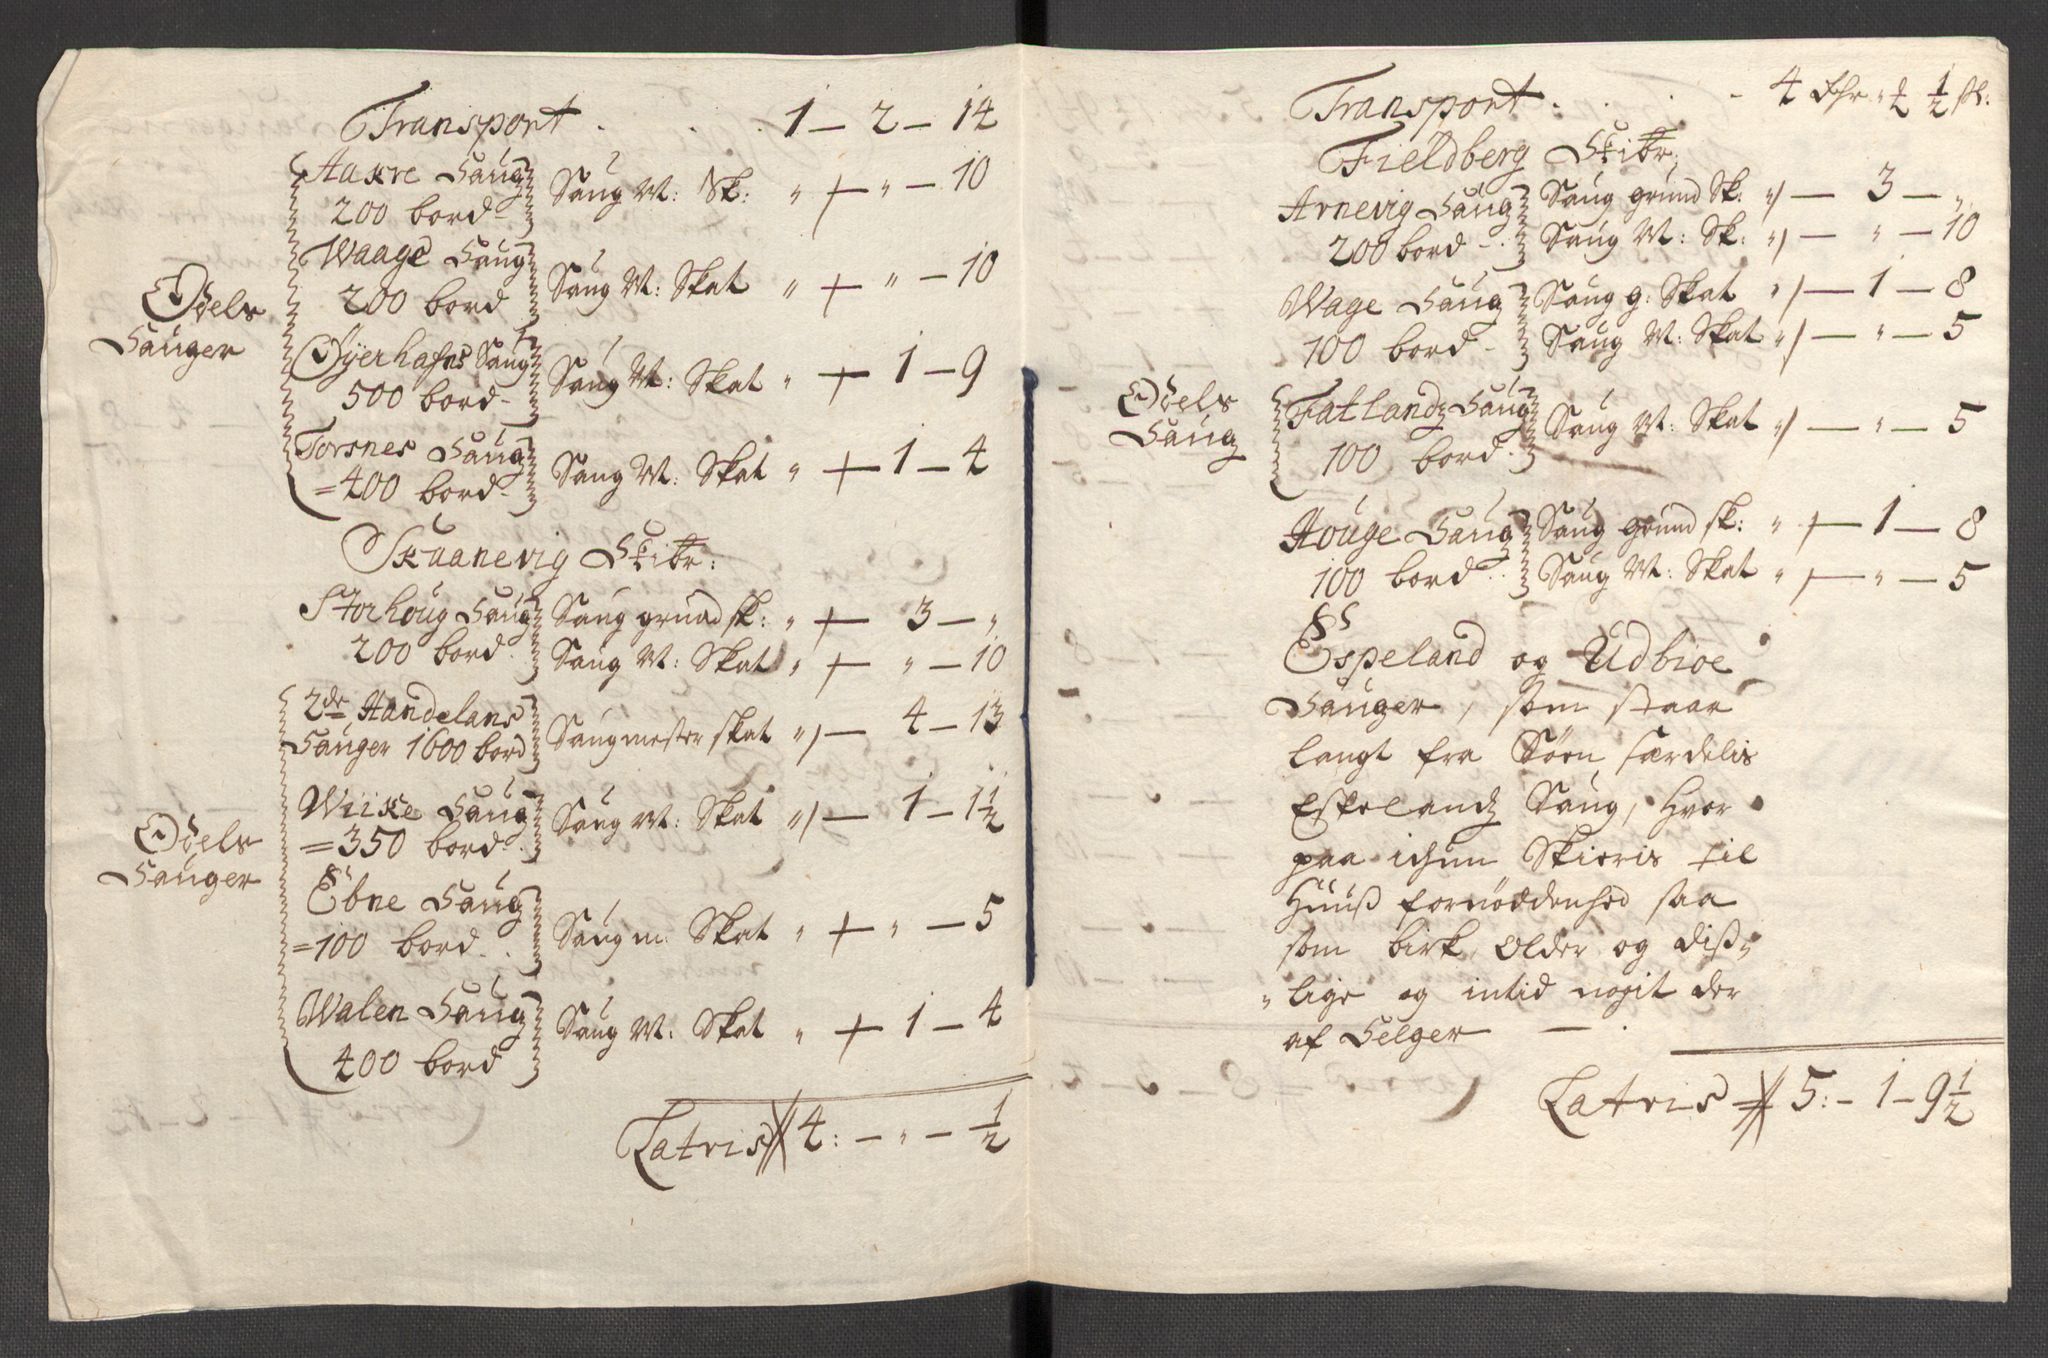 Transport . . . 1 – 2 – 14
Aakre Saug Saug M: Sk: " – " – 10
200 bord –
Waage Saug Saug M: Skat " – " – 10
200 bord
Odels
Sauger
Øyerhafns Saug Saug M: Skat " – 1 – 9
500 bord –
Torsnes Saug Saug M: Skat " – 1 – 4
= 400 bord –
Skaanevig Skibr:
Storhoug Saug Saug grund sk: " – 3 – "
200 bord . Saug M: Skat " – " – 10
2de Handelans Saugmester skat " – 4 – 13
Sauger 1600 bord
Wiike Saug Saug M: Skat " – 1 – 1 1/2
= 350 bord .
Odels
Sauger
Ebne Saug Saug m: Skat " – " – 5
= 100 bord . .
Walen Saug Saug M: Skat " – 1 – 4
400 bord
Latris 4: – " – 1/2
Transport . . . – 4 Dhr " 1/2 sk:
Fieldberg Skibr:
Arnevig Saug Saug grund Sk: " – 3 – "
200 bord – . Saug M: Sk: " – " – 10
Wage Saug Saug g: Skat " – 1 – 8
100 bord – Saug M: Skat " – " – 5
Odels
Saug
Fatlandz Saug Saug M: Skat " – " – 5
100 bord .
Houge Saug Saug grund sk: " – 1 – 8
100 bord . . Saug M: Skat " – " – 5
Espeland og Udbioe
Sauger, som staar
langt fra Søen særdelis
Espelandz Saug, Hvor
paa ichun Skieris til
Huuß fornøddenhed saa
som birk Older og diß-
" lige og intid nogit der
af Selger – .
Latris 5: – 1 – 9 1/2